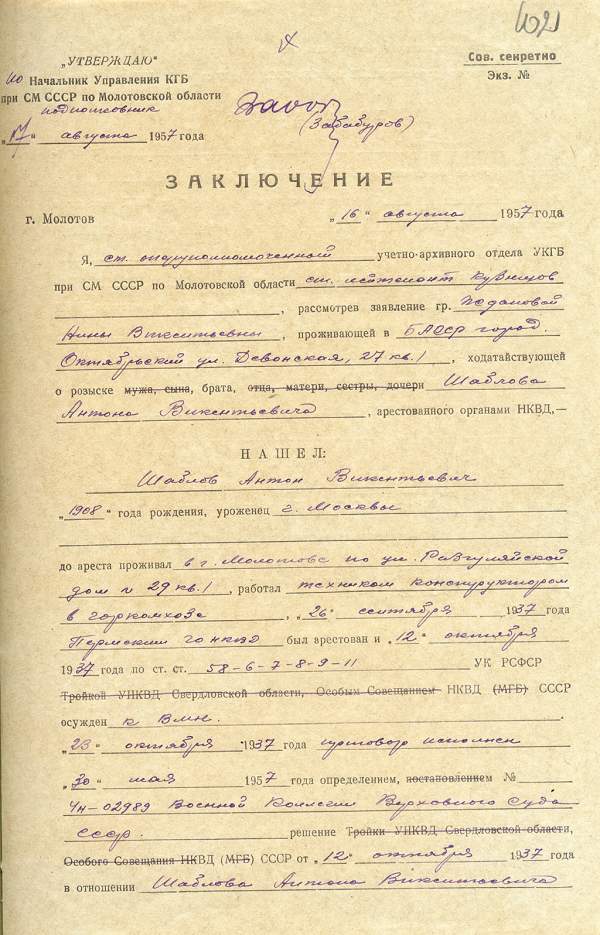 102
„УТВЕРЖДАЮ“
Сов. секретно
Экз. №
ио Начальник Управления КГБ
при СМ СССР по Молотовской области
подполковник
(Забабуров)
„17“ августа 1957 года
ЗАКЛЮЧЕНИЕ
г. Молотов „16“ августа 1957 года
Я, ст. оперуполномоченный учетно-архивного отдела УКГБ
при СМ СССР по Молотовской области ст. лейтенант Кузнецов
, рассмотрев заявление гр. 
Нины Викентьевны, проживающей в БАССР город.
Октябрьский ул. Девонская, 27 кв. 1, ходатайствующей
о розыске мужа, сына, брата, отца, матери, сестры, дочери Шаблова
Антона Викентьевича, арестованного органами НКВД,—
НАШЕЛ:
Шаблов Антон Викентьевич
„1908“ года рождения, уроженец г. Москвы
до ареста проживал в г. Молотове по ул. Разгуляйской
дом № 29 кв. 1, работал техником конструктором
в горкомхоза, „26“ сентября 1937 года
Пермским ГО НКВД был арестован и „12“ октября
1937 года по ст. ст. 58-6-7-8-9-11 УК РСФСР
Тройкой УНКВД Свердловской области, Особым Совещанием НКВД (МГБ) СССР
осужден к ВМН.
„23“ октября 1937 года приговор исполнен
„30“ мая 1957 года определением, постановлением №
4н-02989 Военной Коллегии Верховного Суда
СССР. решение Тройки УНКВД Свердловской области,
Особого Совещания НКВД (МГБ) СССР от „12“ октября 1937 года
в отношении Шаблова Антона Викентьевича